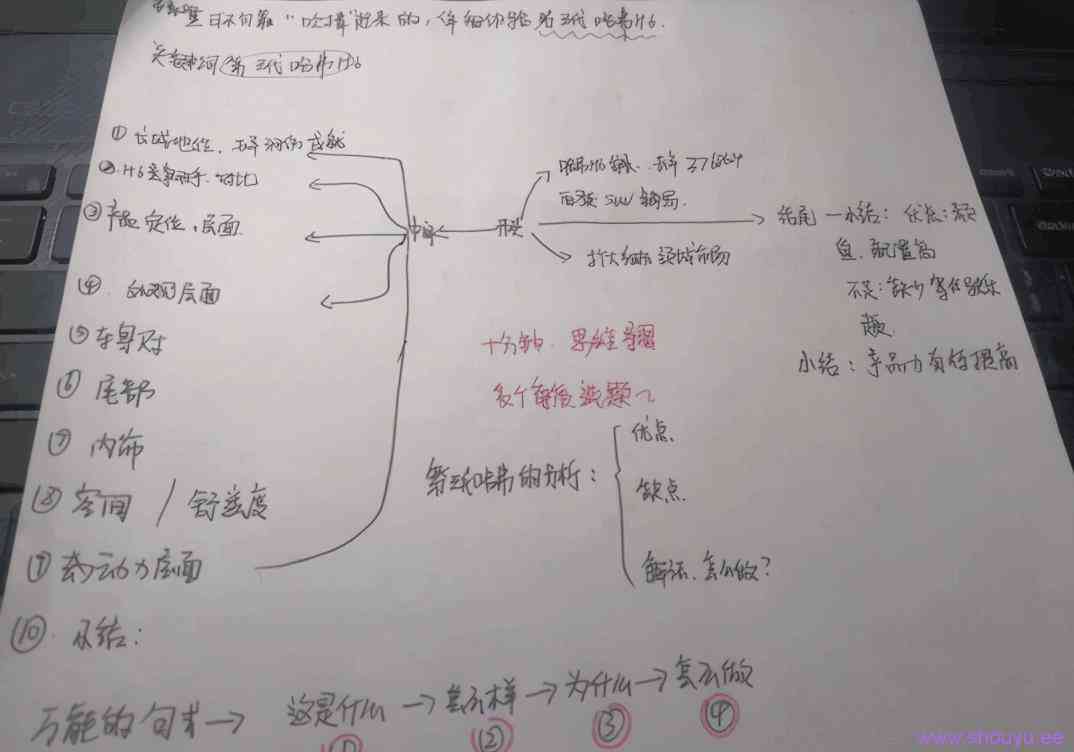 销量冠不但靠“吹捧”出来的，详细体验第三代哈弗H6.
关键词 第三代哈弗H6
① 长城地位. 去年销售成就
② H6竞争对手. 对比
③ 产品定位. 层面
④. 外观层面
⑤ 车身尺寸
⑥ 尾部
⑦ 内饰
⑧ 空间 / 舒适度
⑨ 动力层面
⑩. 小结：
中间
开头
哈弗H6 销量. 去年376864
国产SUV 销量.
扩大细分领域市场
结尾 — 小结：优点：颜
值. 配置高
不足：缺少
小结：产品力有待提高
十分钟. 思维导图
多个角度选题
第三代哈弗的分析：
优点.
缺点.
解决. 怎么做？
万能的句式→ 这是什么→怎么样→为什么→怎么做
① ② ③ ④
www.shouyu.ee